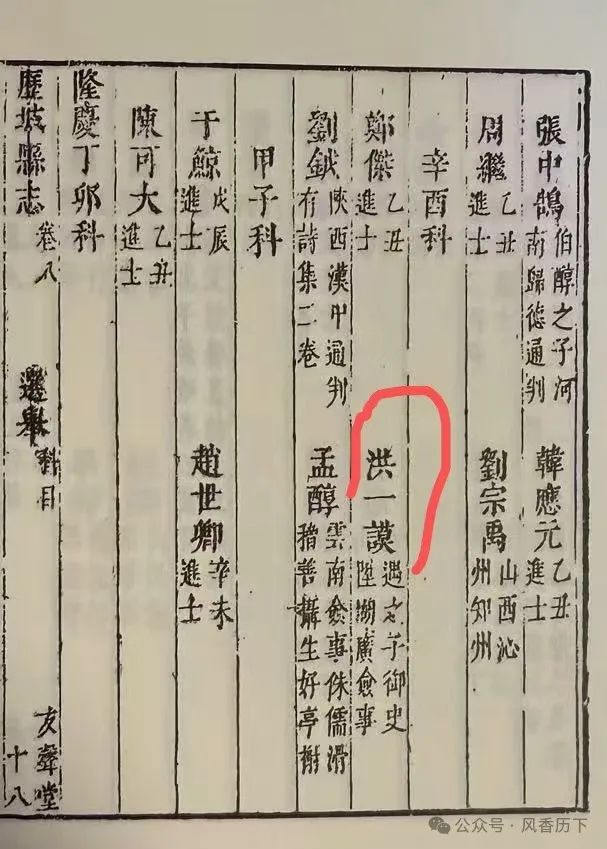 張中鵠 伯醇之子河南歸德通判 韓應元 乙丑進士
周繼 乙丑進士 劉宗禹 山西沁州知州
辛酉科
鄭傑 乙丑進士 洪一謨 遇之子御史陞湖廣僉事
劉鉞 陝西漢中通判有詩集二卷 孟醇 雲南僉事侏儒滑稽善攝生好亭榭
甲子科
于鯨 戊辰進士 趙世卿 辛未進士
陳可大 乙丑進士
隆慶丁卯科
歷城縣志 卷八 選舉 科目 友聲堂 十八
公众号·风香历下